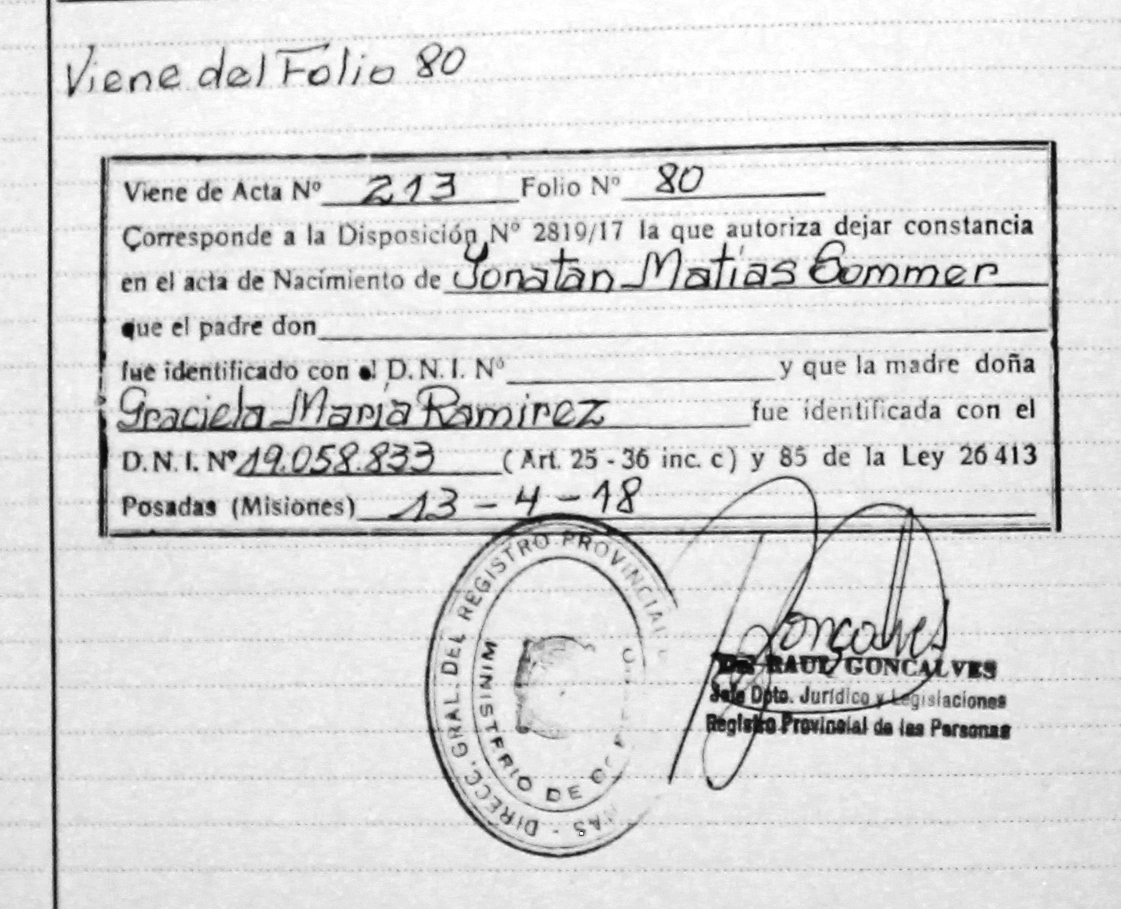 Viene del Folio 80
Viene de Acta Nº 213 Folio Nº 80
Corresponde a la Disposición Nº 2819/17 la que autoriza dejar constancia
en el acta de Nacimiento de Yonatan Matias Sommer
que el padre don
fue identificado con el D. N. I. Nº y que la madre doña
Graciela Maria Ramirez fue identificada con el
D. N. I. Nº 19.058.833 ( Art. 25 - 36 inc. c ) y 85 de la Ley 26 413
Posadas (Misiones) 13 - 4 - 18
DIRECC. GRAL. DEL REGISTRO PROVINCIAL
MINISTERIO DE
Gonçalves
RAUL GONCALVES
Jefe Dpto. Jurídico y Legislaciones
Registro Provincial de las Personas